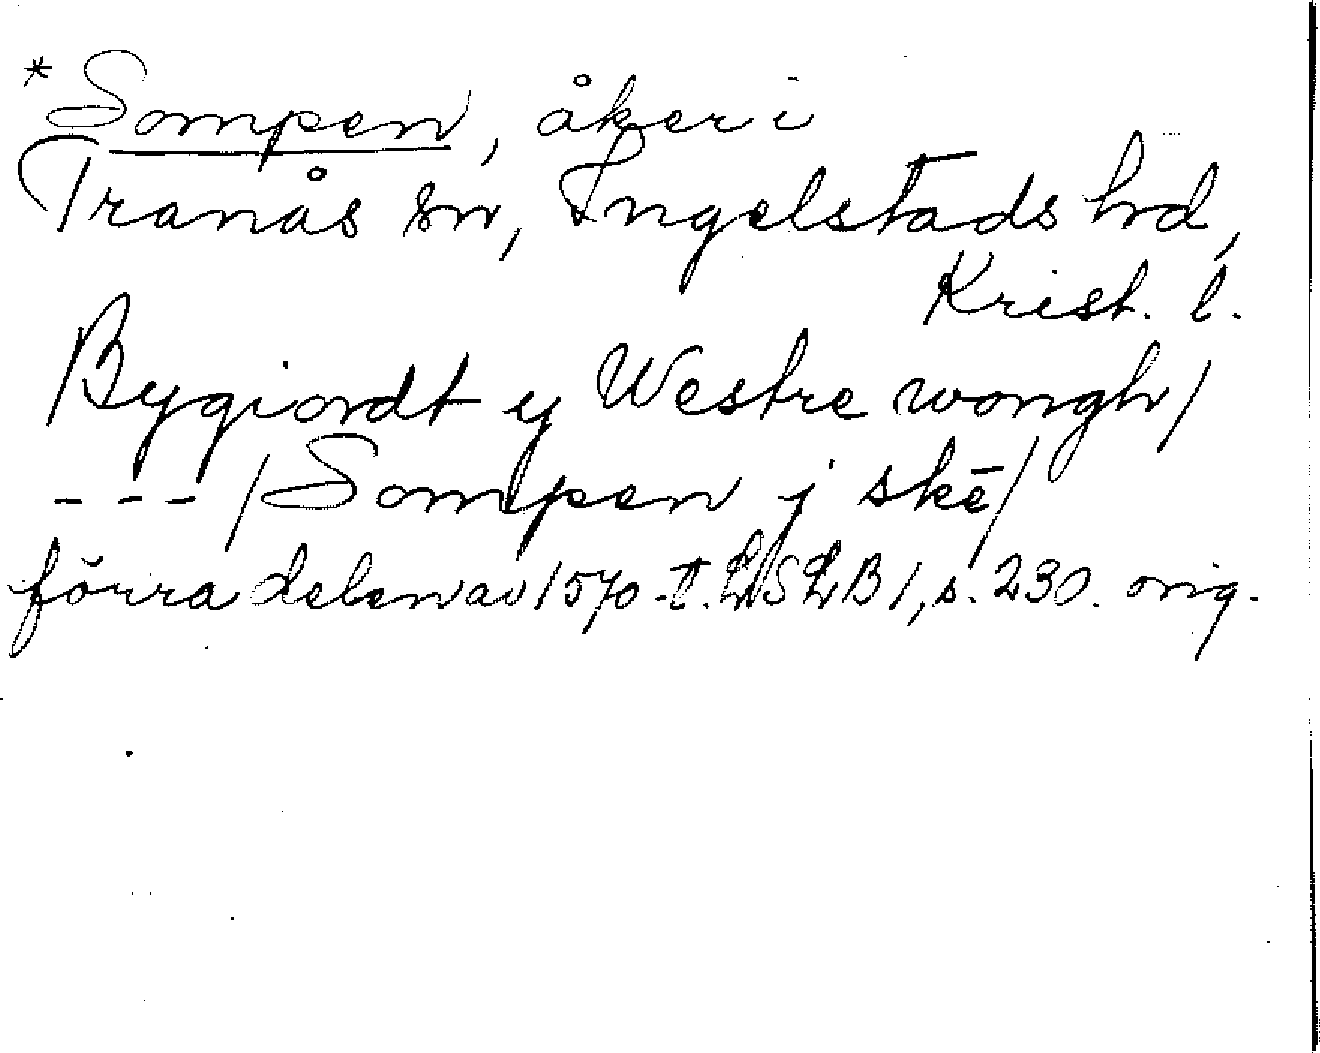 *Sompen, åker i
Tranås sn, Ingelstads hd,
Krist. l.
Bygiordt y Westre wongh/
--- /Sompen j skē/
förra delen av 1570-t. LUSLB 1, s. 230. orig.